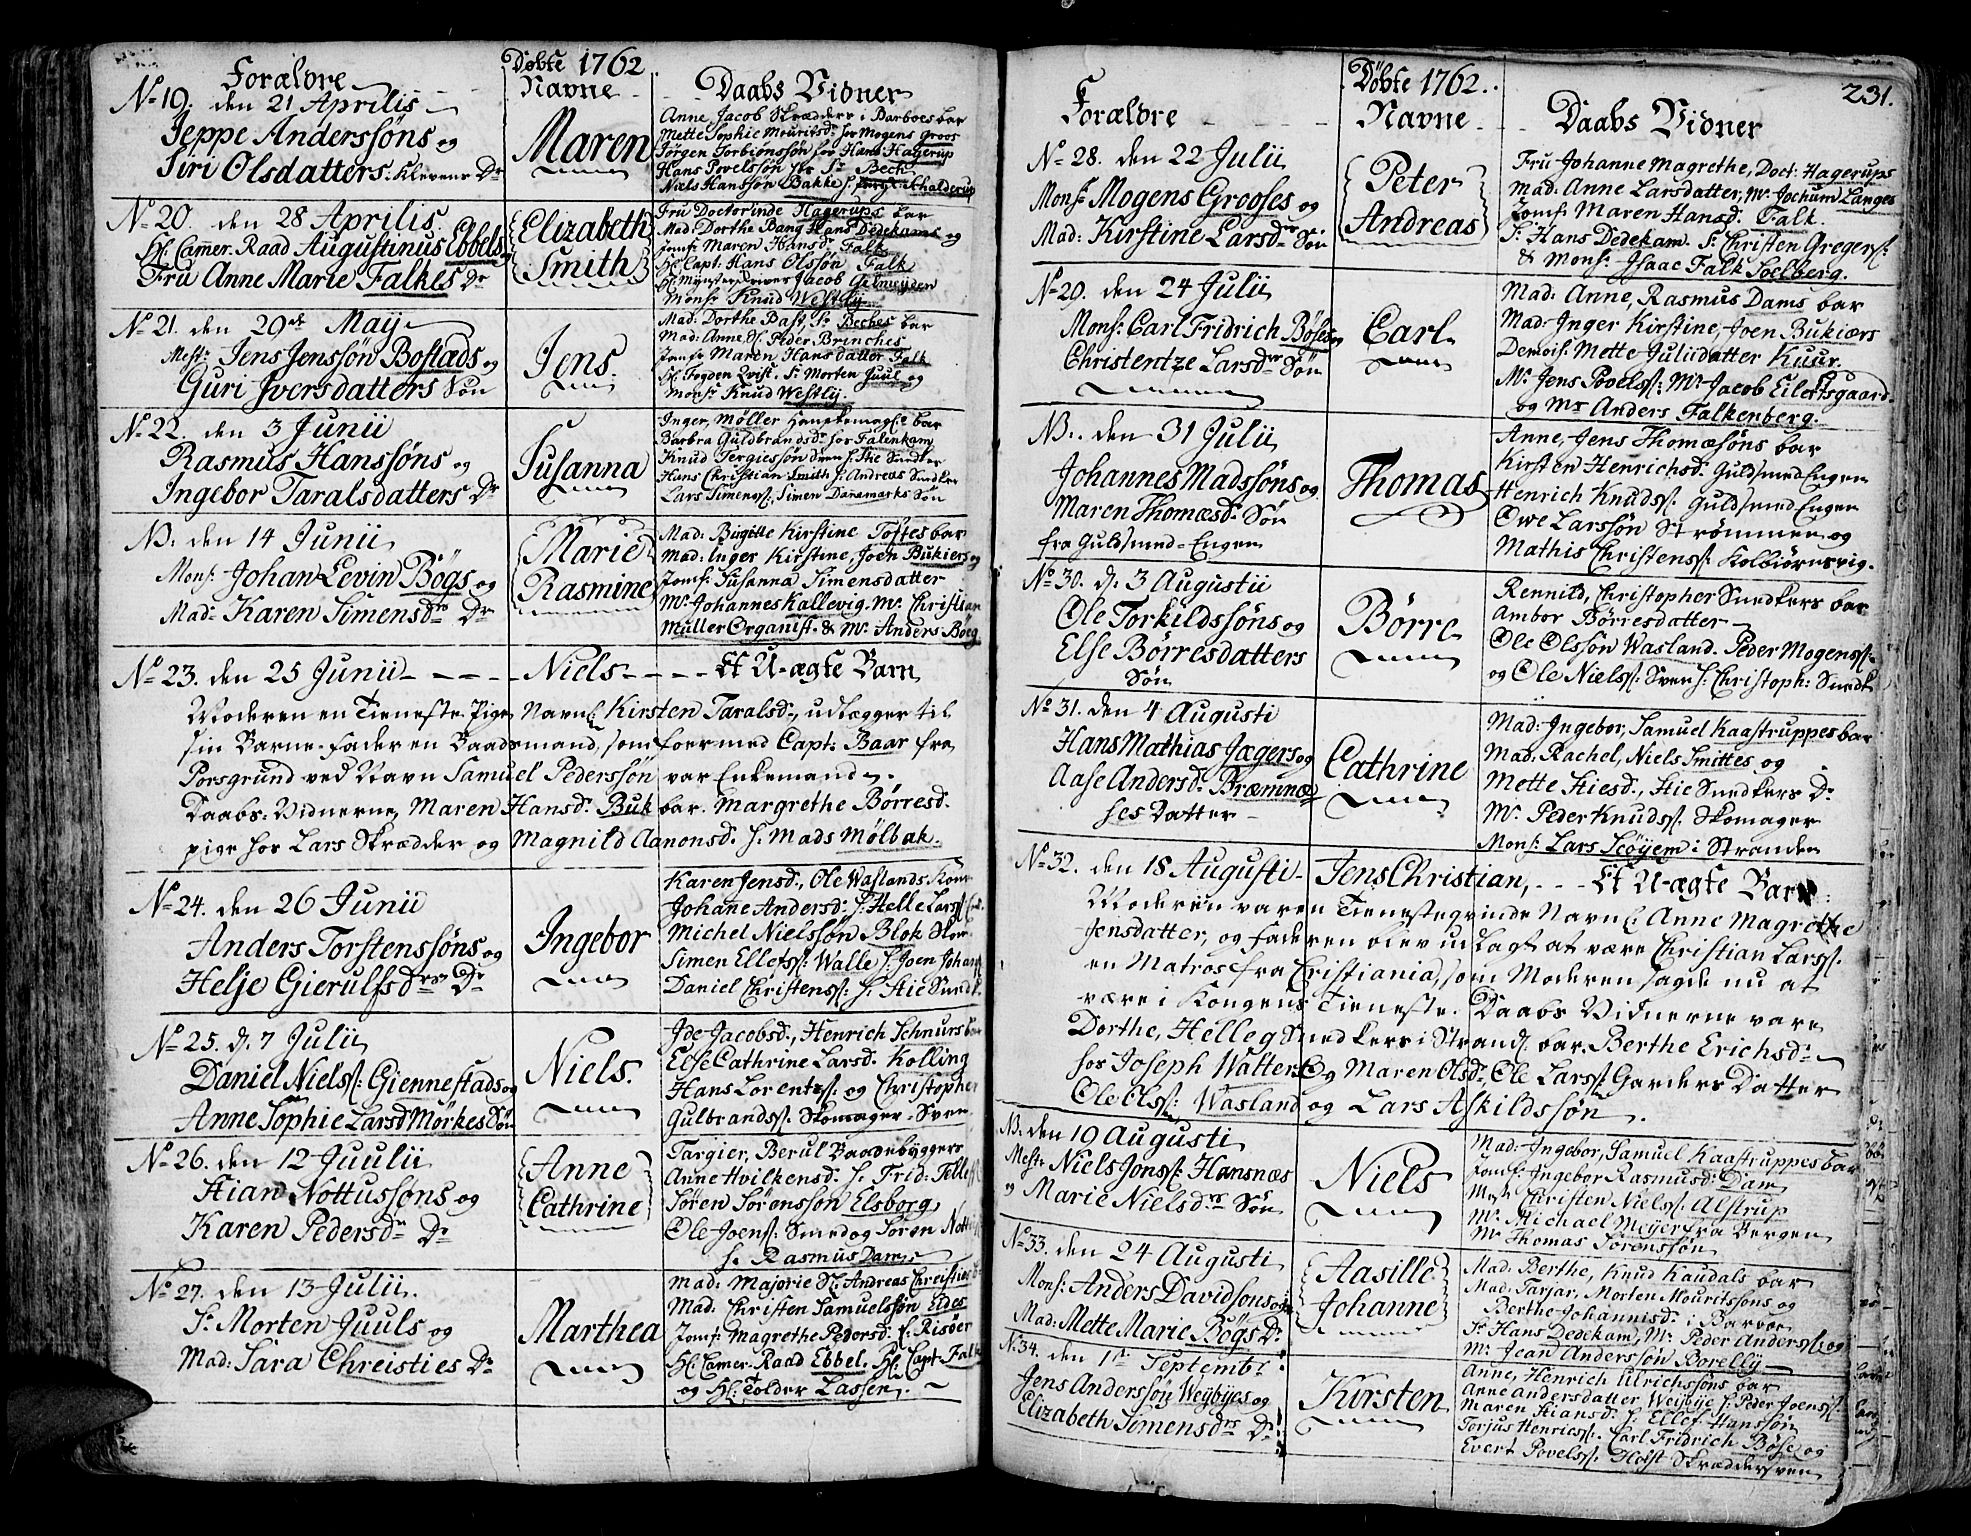 Forældre
Døbte 1762.
Navne
Daabs Vidner
No 19. den 21 Aprilis
Jeppe Anderssøns og
Siri Olsdatters: Klevens Dr
Maren
Anne Jacob Skrædders i Barboes bar
Mette Sophie Mouritsdr for Mogens Groos
Jørgen Torbiønssøn for Hans Hagerup
Hans Povelssøn hos Sr Bech
Niels Hanssøn Bakke
No 20. den 28 Aprilis.
Hl. Camer-Raad Augustinus Ebbels
Fru Anne Marie Falkes Dr
Elizabeth
Smith
Fru Doctorinde Hagerups bar
Mad Dorthe Bang Hans Dedekams og
Jomfr Maren Hansdr Falk
Hl. Capt. Hans Olssøn Falk
Hl. Mynsterskriver Jacob Gelmeyden
Monsr Knud Westly
No 21. den 29de Maij
Mestr Jens Jenssøn Bostads og
Guri Iversdatters Søn
Jens.
Mad: Dorthe Bast, Sr Beches bar
Mad: Anne Sl. Peder Brinches
Jomfr Maren Hansdatter Falk
Hl. Fogden Qvist. Sr Morten Juul og
Monsr Knud Westly.
No 22. den 3 Junii
Rasmus Hanssøns og
Ingebor Taralsdatters Dr
Susanna
Inger, Møller Hanskemagrs bar
Barbra Guldbrandsdr for Falenkam
Knud Tergiessøn dren f. Stie Snedker
Hans Christian Smith f. Andreas Snedker
Lars Simenss. Simen Danemarks Søn
NB. den 14 Junii
Monsr Johan Levin Bøgs og
Mad: Karen Simensdrs Dr
Marie
Rasmine
Mad: Birgitte Kirstine Toftes bar
Mad: Inger Kirstine, Joen Bukiers og
Jomfr Susanna Simensdatter
Mr Johannes Kallevig. Mr Christian
Müller Organist. & Mr Anders Bøeg
No 23. den 25 Junii - - - - Niels - - - - Et U-ægte Barn
Moderen en Tieneste Pige, Navnl. Kirsten Taralsdr, udlægger til
sin Barne-fader en Baadsmand, som foer med Capt: Baar fra
Porsgrund ved Navn Samuel Pederssøn var Enkemand.
Daabs-Vidnerne, Maren Hansdr Buk bar. Margrethe Børresdr
pige hos Lars Skrædder og Magnild Aanonsdr f. Mads Mølbak.
No 24. den 26 Junii
Anders Torstenssøns og
Helje Gierulfs Drs Dr
Ingebor
Karen Jensdr, Ole Waslands Kone
Johane Andersdr f. Helle Larss
Michel Nielssøn Blok
Simen Ellefss: Walle f. Joen Johans
Daniel Christenss: f. Stie Snedk.
No 25. d. 7 Julii
Daniel Nielss: Giennestads og
Anne Sophie Larsd Mørkes Søn
Niels.
Ide Jacobsdr, Henrich Schnurs bar
Else Cathrine Larsdr Kolling
Hans Lorentss: og Christopher
Gulbrandss: Skomager-Sven
No 26. den 12 Juulii
Stian Nottussøns og
Karen Pedersdr Dr
Anne
Cathrine
Targier, Berul Baadebyggers
Anne Hvilkensdr f. Frid: Tellefs
Søren Sørenssøn Elsborg,
Ole Joens: Smed og Søren Notte
f. Rasmus Dam.
No 27. den 13 Julii.
Sr Morten Juuls og
Mad: Sara Chreisties Dr
Marthea
Mad: Majorie Sl. Andreas Chreisties b.
Mad: Christen Samuelssøn Eides
Jomfr Magrethe Pedersdr f. Risøer
Hl. Camer-Raad Ebbel. Hl. Capt Falk
og Hl. Tolder Lassen.
231.
Forældre
Døbte 1762.
Navne
Daabs Vidner
No 28. den 22 Julii
Monsr Mogens Grooses og
Mad: Kirstine Larsdrs Søn
Peter
Andreas
Fru Johanne Magrethe, Doct: Hagerups
Mad: Anne Larsdatter, Mr Jochum Langes
Jomfr Maren Hansdr Falk.
Sr Hans Dedekam. Sr Christen Gregerss:
& Monsr Isaac Falk Soelberg.
No 29. den 24 Julii
Monsr Carl Fridrich Bøses og
Christentze Larsdrs Søn
Carl
Mad: Anne, Rasmus Dams bar
Mad: Inger Kirstine, Joen Bukiers
Demois: Mette Juliidatter Kuur.
Mr Jens Povelss: Mr Jacob Eilertsgaard.
og Mr Anders Falkenberg.
NB. den 31 Julii
Johannes Madssøns og
Maren Thomæsdr Søn
fra Guldsmed-Engen
Thomas
Anne, Jens Thomæsøns bar
Kirsten Henrichsdr Guldsmed Engen
Henrich Knudss: Guldsmed Engen
Owe Larssøn Strømmen og
Mathis Christenss: Kolbiørnsvig.
No 30. d. 3 Augustii
Ole Torkildssøns og
Else Børresdatters
Søn
Børre
Rennild, Christopher Snedkers bar
Ambor Børresdatter
Ole Olssøn Wasland. Peder Mogenss:
og Ole Nielss: Sven f. Christoph: Snedk
No 31. den 4 Augusti
Hans Mathias Jægers og
Aase Andersdr Bræmnæ
ses Datter
Cathrine
Mad: Ingebor, Samuel Kaastruppes bar
Mad: Rachel, Niels Smittes og
Mette Stiesdr, Stie Snedkers Dr
Mr Peder Knudss: Skomager
Monsr Lars Scöyem i Stranden
No 32. den 18 Augusti - Jens Christian, - - - Et U-ægte Barn:
Moderen var en Tienesteqvinde Navnl. Anne Magrethe
Jensdatter, og faderen blev udlagt at være Christian Larss:
en Matros fra Cristiania, som Moderen sagde nu at
være i Kongens Tieneste. Daabs Vidnerne vare
Dorthe, Helleg Snedkers i Strand: bar. Berthe Erichsdr
hos Joseph Watters og Maren Olsdr, Ole Larss: Garders Datter
Ole Olss: Wasland og Lars Askildssøn.
NB. den 19 Augusti
Mestr Niels Jonss: Hansnæs
og Marie Nielsdrs Søn
Niels
Mad: Ingebor, Samuel Kaastruppes bar
Jomfr Ingebor Rasmusdr Dam
Mestr Christen Nielss: Alstrup
Mr Michael Meyer fra Bergen
Mr Thomas Sørenssøn
No 33. den 24 Augusti
Monsr Anders Davidsons og
Mad: Mette Marie Bøgs Dr
Aasille
Johanne
Mad: Berthe, Knud Kaudals bar
Mad: Tarjar, Morten Mouritssøns og
Berthe Johannisdr i Barboe
Sr Hans Dedekam, Mr Peder Anderss: og
Mr Jean Anderssøn Borelly
No 34. den 1st Septembr
Jens Anderssøn Weybyes og
Elizabeth Simensdrs Dr
Kirsten
Anne, Henrich Ulrichssøns bar
Anne Andersdatter, Weibije f. Peder Joenss:
Maren Stiansdr f. Ellef Hanssøn
Torjus Henricss: Carl Fridrich Bøse og
Evert Povelss: Holst Skræddersven